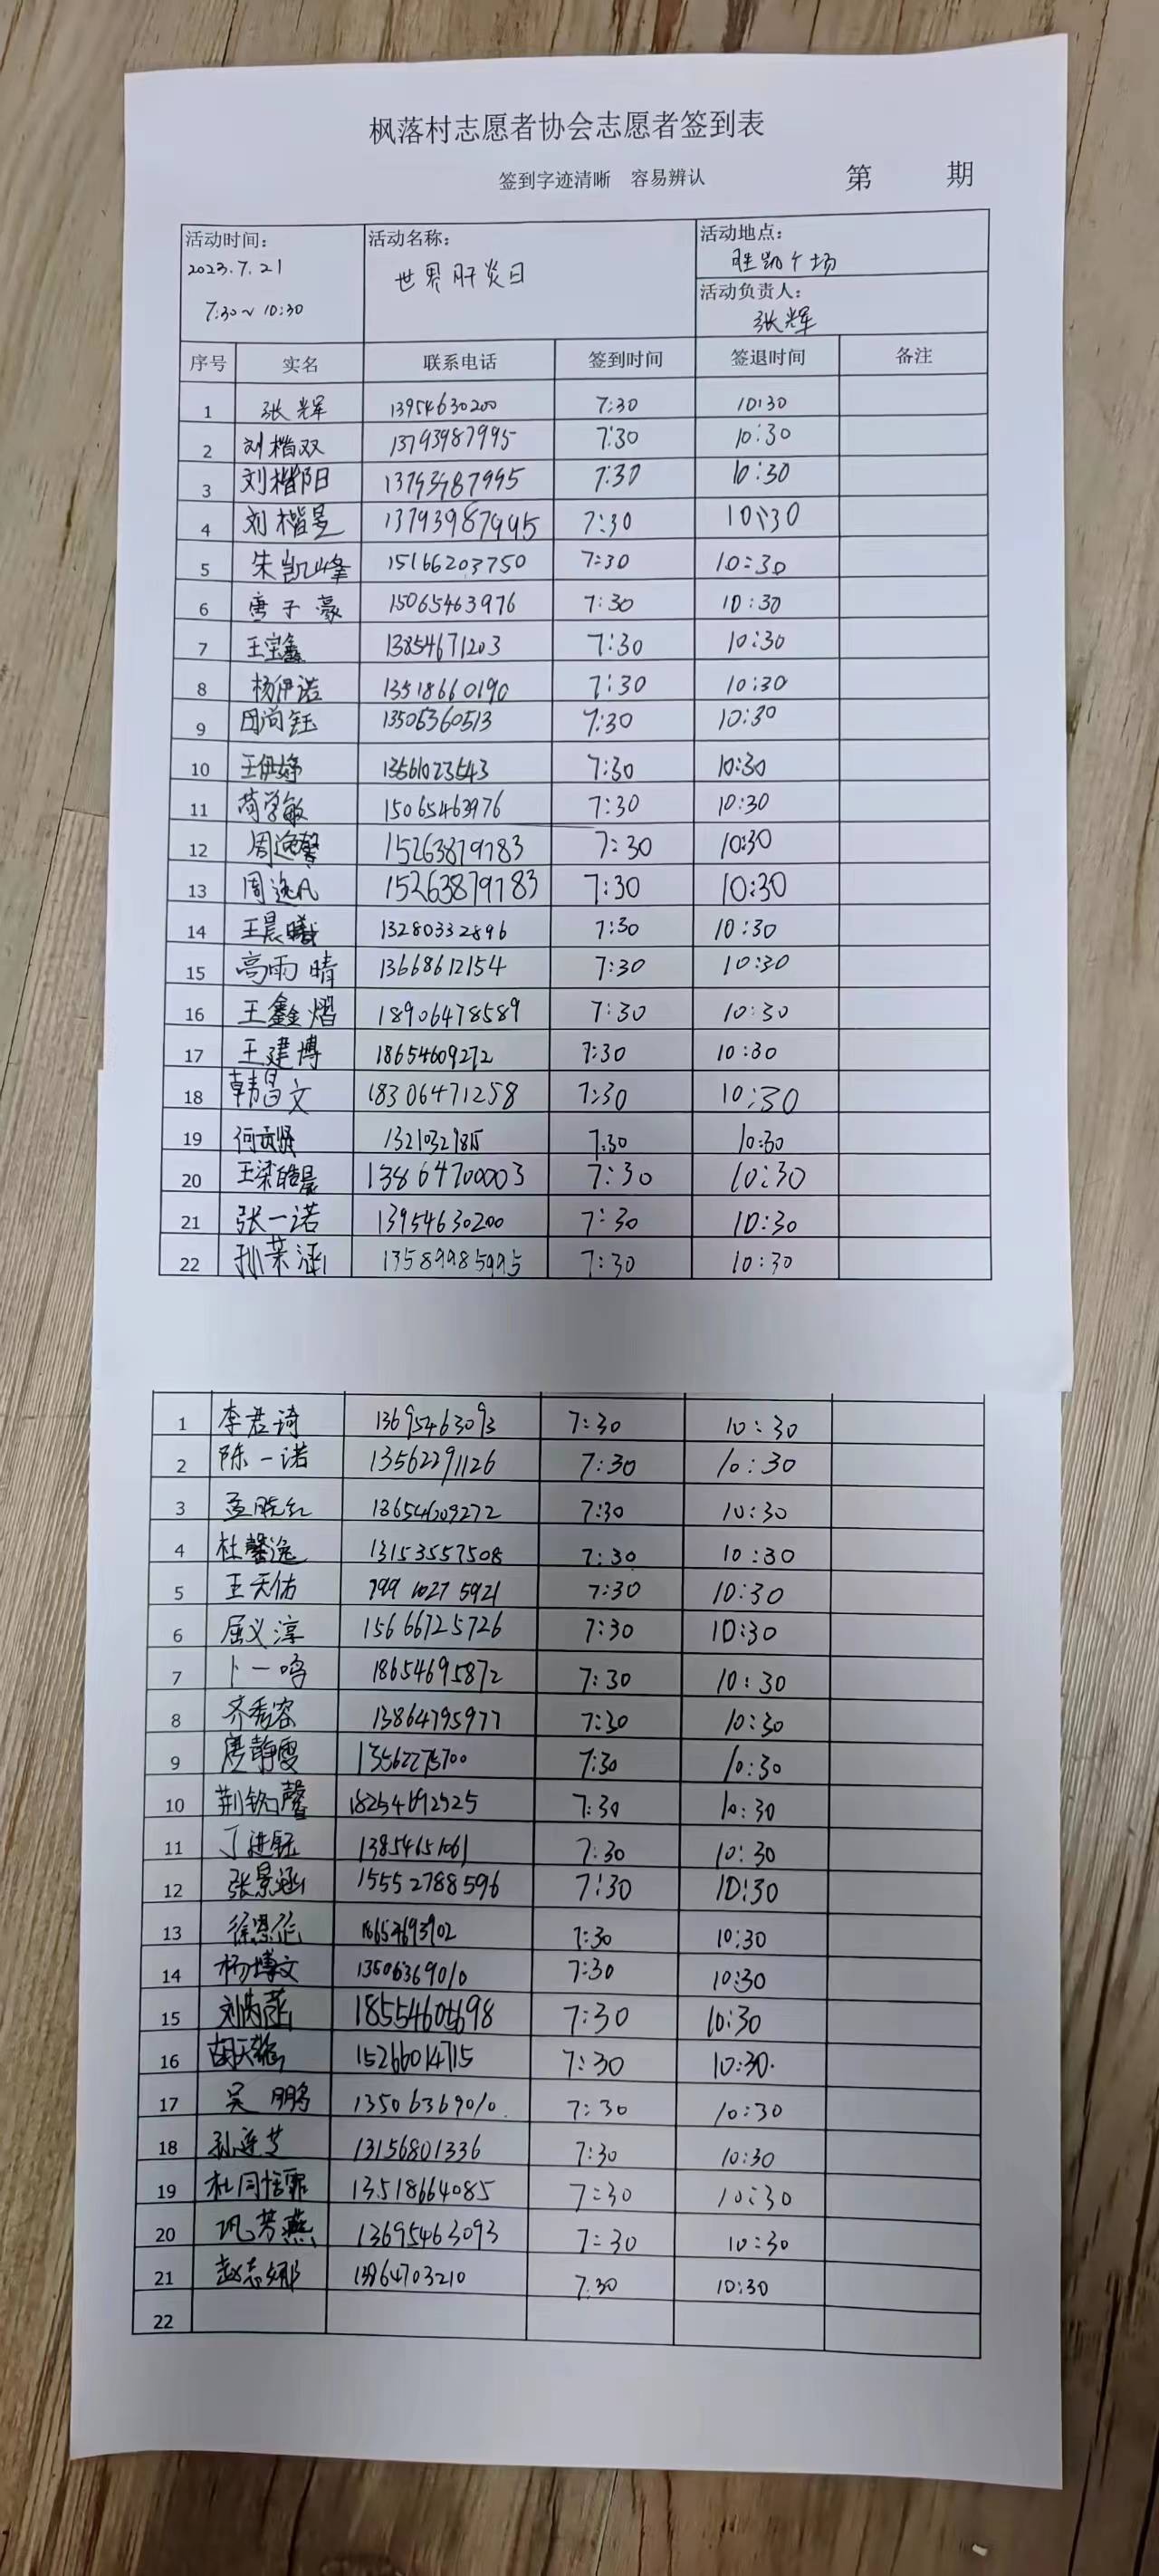 枫落村志愿者协会志愿者签到表
签到字迹清晰 容易辨认 第 期
活动时间： 活动名称： 活动地点：
2023.7.21 世界肝炎日 胜凯广场
7:30~10:30 活动负责人：
张辉
序号 实名 联系电话 签到时间 签退时间 备注
1 张辉 13954630200 7:30 10:30
2 刘楷双 13793987995 7:30 10:30
3 刘楷阳 13793987995 7:30 10:30
4 刘楷昱 13793987995 7:30 10:30
5 朱凯峰 15166203750 7:30 10:30
6 唐子豪 15065463976 7:30 10:30
7 王宝鑫 13854671203 7:30 10:30
8 杨伊诺 13518660190 7:30 10:30
9 田尚钰 13506360513 7:30 10:30
10 王伊婷 13561023543 7:30 10:30
11 蔺学敏 15065463976 7:30 10:30
12 周逸馨 15263879783 7:30 10:30
13 周逸凡 15263879783 7:30 10:30
14 王晨曦 13280332896 7:30 10:30
15 高雨晴 13668612154 7:30 10:30
16 王鑫熠 18906478589 7:30 10:30
17 王建博 18654609272 7:30 10:30
18 韩昌文 18306471258 7:30 10:30
19 7:30 10:30
20 王梁皓晨 13864700003 7:30 10:30
21 张一诺 13954630200 7:30 10:30
22 孙荣涵 13589985995 7:30 10:30
1 李君琦 13695463093 7:30 10:30
2 陈一诺 13562291126 7:30 10:30
3 孟晓红 18654609272 7:30 10:30
4 杜馨逸 13153557508 7:30 10:30
5 王天佑 199 1027 5921 7:30 10:30
6 屈义淳 15666725726 7:30 10:30
7 卜一鸣 18654695872 7:30 10:30
8 齐秀容 13864795977 7:30 10:30
9 唐静雯 13562275700 7:30 10:30
10 荆铭馨 18254692525 7:30 10:30
11 13854651061 7:30 10:30
12 张景涵 15552788596 7:30 10:30
13 7:30 10:30
14 杨博文 13506369010 7:30 10:30
15 18554605698 7:30 10:30
16 15266014715 7:30 10:30
17 吴鹏 13506369010 7:30 10:30
18 孙连芝 13156801336 7:30 10:30
19 杜同恬霏 13518664085 7:30 10:30
20 巩芳燕 13695463093 7:30 10:30
21 赵志娜 13864703210 7:30 10:30
22